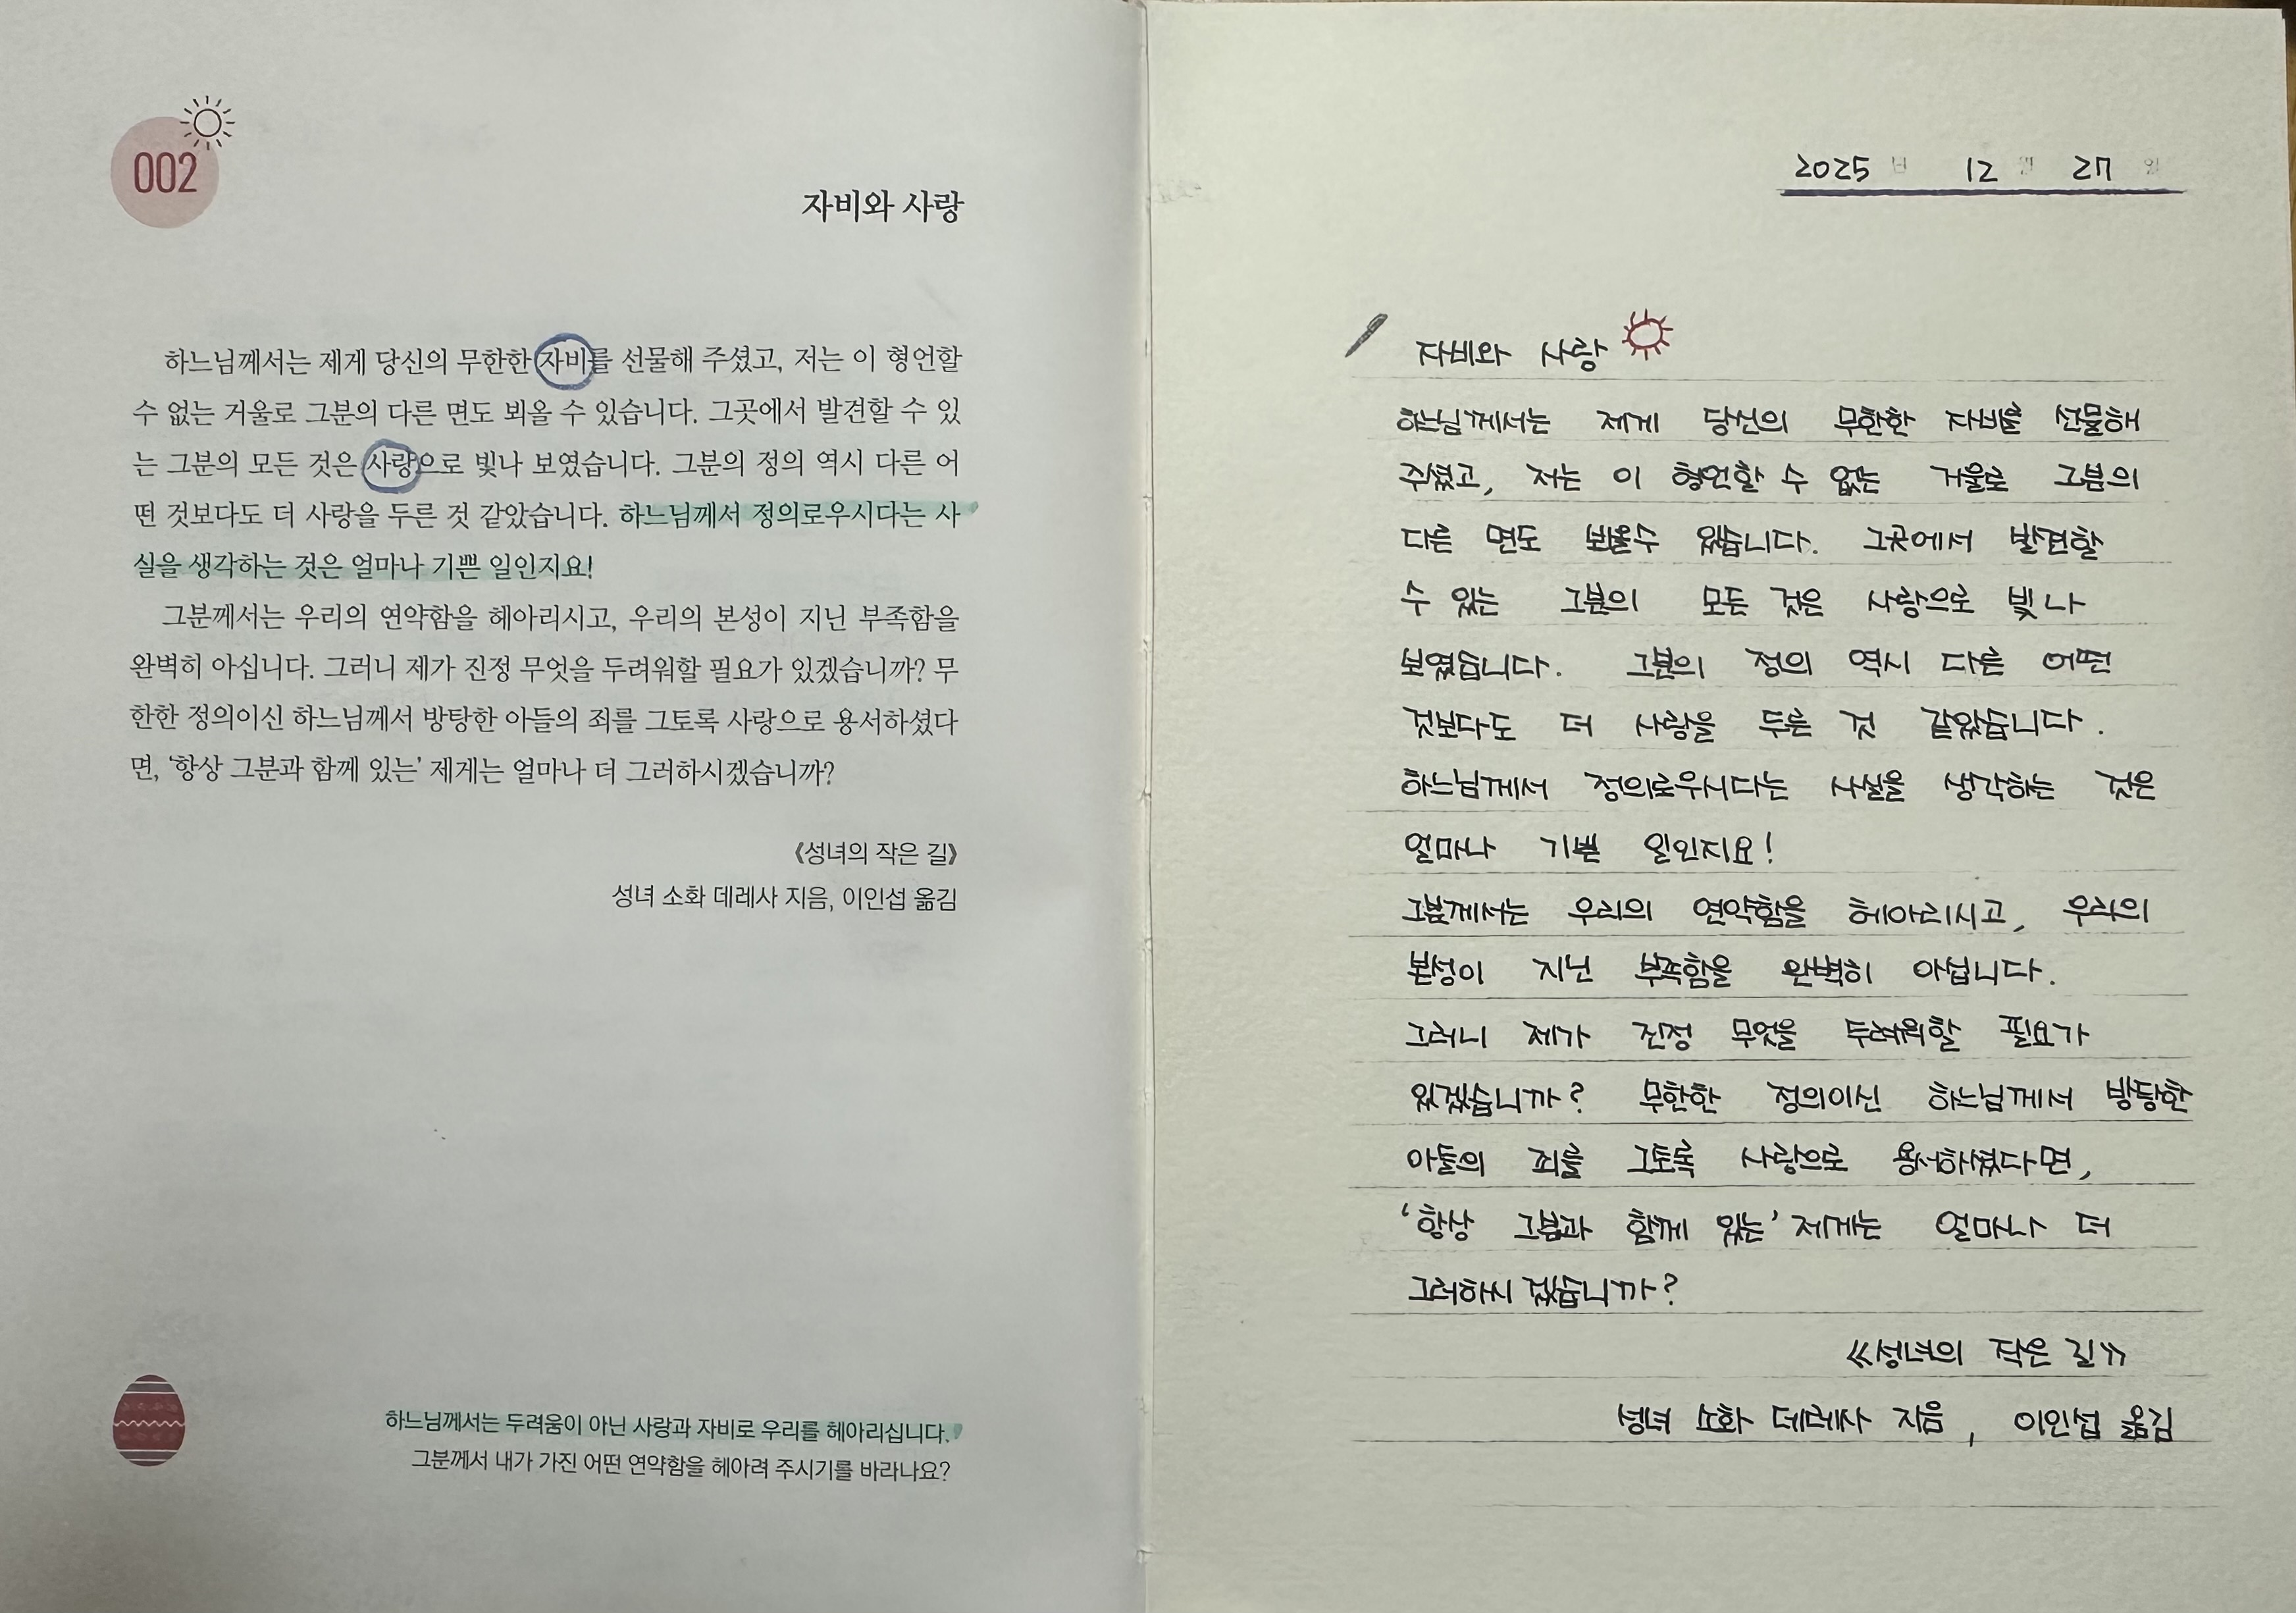 002
자비와 사랑
하느님께서는 제게 당신의 무한한 자비를 선물해 주셨고, 저는 이 형언할
수 없는 거울로 그분의 다른 면도 뵈올 수 있습니다. 그곳에서 발견할 수 있
는 그분의 모든 것은 사랑으로 빛나 보였습니다. 그분의 정의 역시 다른 어
떤 것보다도 더 사랑을 두른 것 같았습니다. 하느님께서 정의로우시다는 사
실을 생각하는 것은 얼마나 기쁜 일인지요!
그분께서는 우리의 연약함을 헤아리시고, 우리의 본성이 지닌 부족함을
완벽히 아십니다. 그러니 제가 진정 무엇을 두려워할 필요가 있겠습니까? 무
한한 정의이신 하느님께서 방탕한 아들의 죄를 그토록 사랑으로 용서하셨다
면, ‘항상 그분과 함께 있는’ 제게는 얼마나 더 그러하시겠습니까?
《성녀의 작은 길》
성녀 소화 데레사 지음, 이인섭 옮김
하느님께서는 두려움이 아닌 사랑과 자비로 우리를 헤아리십니다.
그분께서 내가 가진 어떤 연약함을 헤아려 주시기를 바라나요?
2025 년 12 월 27 일
자비와 사랑
하느님께서는 제게 당신의 무한한 자비를 선물해
주셨고, 저는 이 형언할 수 없는 거울로 그분의
다른 면도 뵈올수 있습니다. 그곳에서 발견할
수 있는 그분의 모든 것은 사랑으로 빛나
보였습니다. 그분의 정의 역시 다른 어떤
것보다도 더 사랑을 두른 것 같았습니다.
하느님께서 정의로우시다는 사실을 생각하는 것은
얼마나 기쁜 일인지요!
그분께서는 우리의 연약함을 헤아리시고, 우리의
본성이 지닌 부족함을 완벽히 아십니다.
그러니 제가 진정 무엇을 두려워할 필요가
있겠습니까? 무한한 정의이신 하느님께서 방탕한
아들의 죄를 그토록 사랑으로 용서하셨다면,
‘항상 그분과 함께 있는’ 제게는 얼마나 더
그러하시겠습니까?
《성녀의 작은 길》
성녀 소화 데레사 지음, 이인섭 옮김